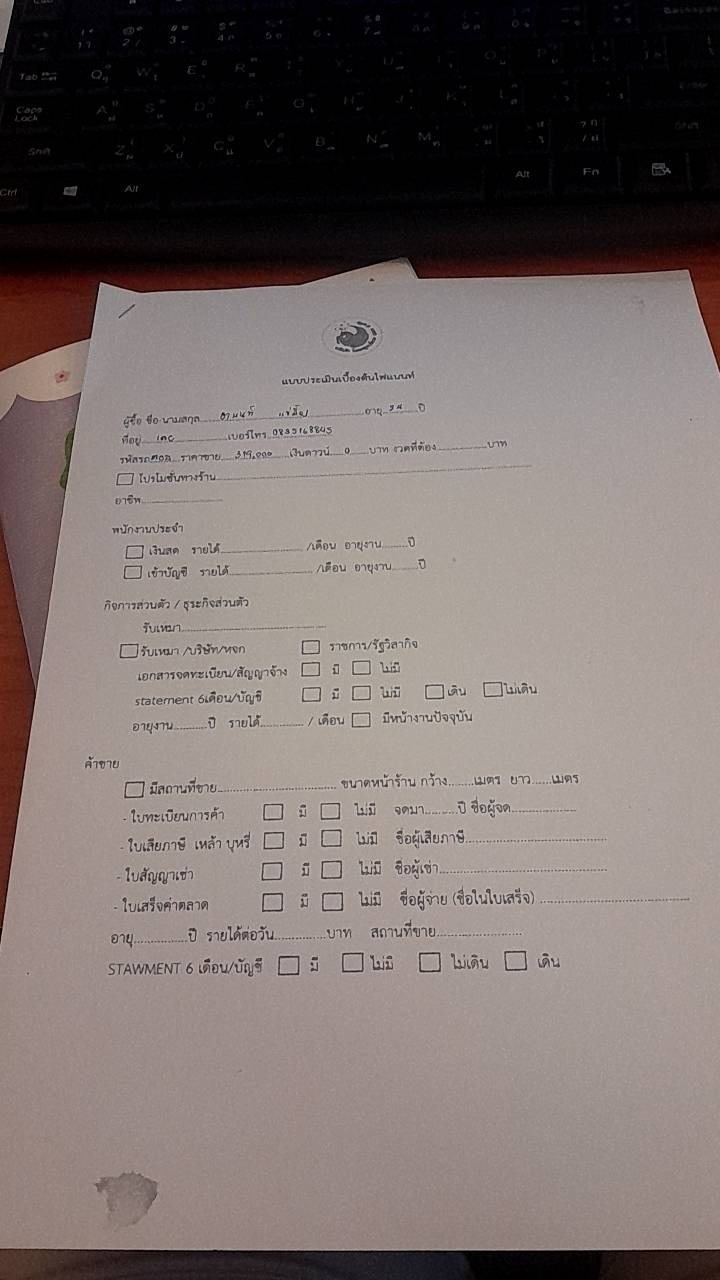 Tab
Q W E R
Caps Lock
A S D F G H J K L
Shift
Z X C V B N M
Ctrl Alt Alt Fn
แบบประเมินเบื้องต้นไฟแนนท์
ผู้ซื้อ ชื่อ-นามสกุล อายุ ปี
ที่อยู่ เบอร์โทร 0835168845
รหัสรถ ราคาขาย 319,000 เงินดาวน์ 0 บาท งวดที่ต้อง บาท
โปรโมชั่นทางร้าน
อาชีพ
พนักงานประจำ
เงินสด รายได้ /เดือน อายุงาน ปี
เข้าบัญชี รายได้ /เดือน อายุงาน ปี
กิจการส่วนตัว / ธุระกิจส่วนตัว
รับเหมา
รับเหมา /บริษัท/หจก ราชการ/รัฐวิสากิจ
เอกสารจดทะเบียน/สัญญาจ้าง มี ไม่มี
statement 6เดือน/บัญชี มี ไม่มี เดิน ไม่เดิน
อายุงาน ปี รายได้ / เดือน มีหน้างานปัจจุบัน
ค้าขาย
มีสถานที่ขาย ขนาดหน้าร้าน กว้าง เมตร ยาว เมตร
- ใบทะเบียนการค้า มี ไม่มี จดมา ปี ชื่อผู้จด
- ใบเสียภาษี เหล้า บุหรี่ มี ไม่มี ชื่อผู้เสียภาษี
- ใบสัญญาเช่า มี ไม่มี ชื่อผู้เช่า
- ใบเสร็จค่าตลาด มี ไม่มี ชื่อผู้จ่าย (ชื่อในใบเสร็จ)
อายุ ปี รายได้ต่อวัน บาท สถานที่ขาย
STAWMENT 6 เดือน/บัญชี มี ไม่มี ไม่เดิน เดิน